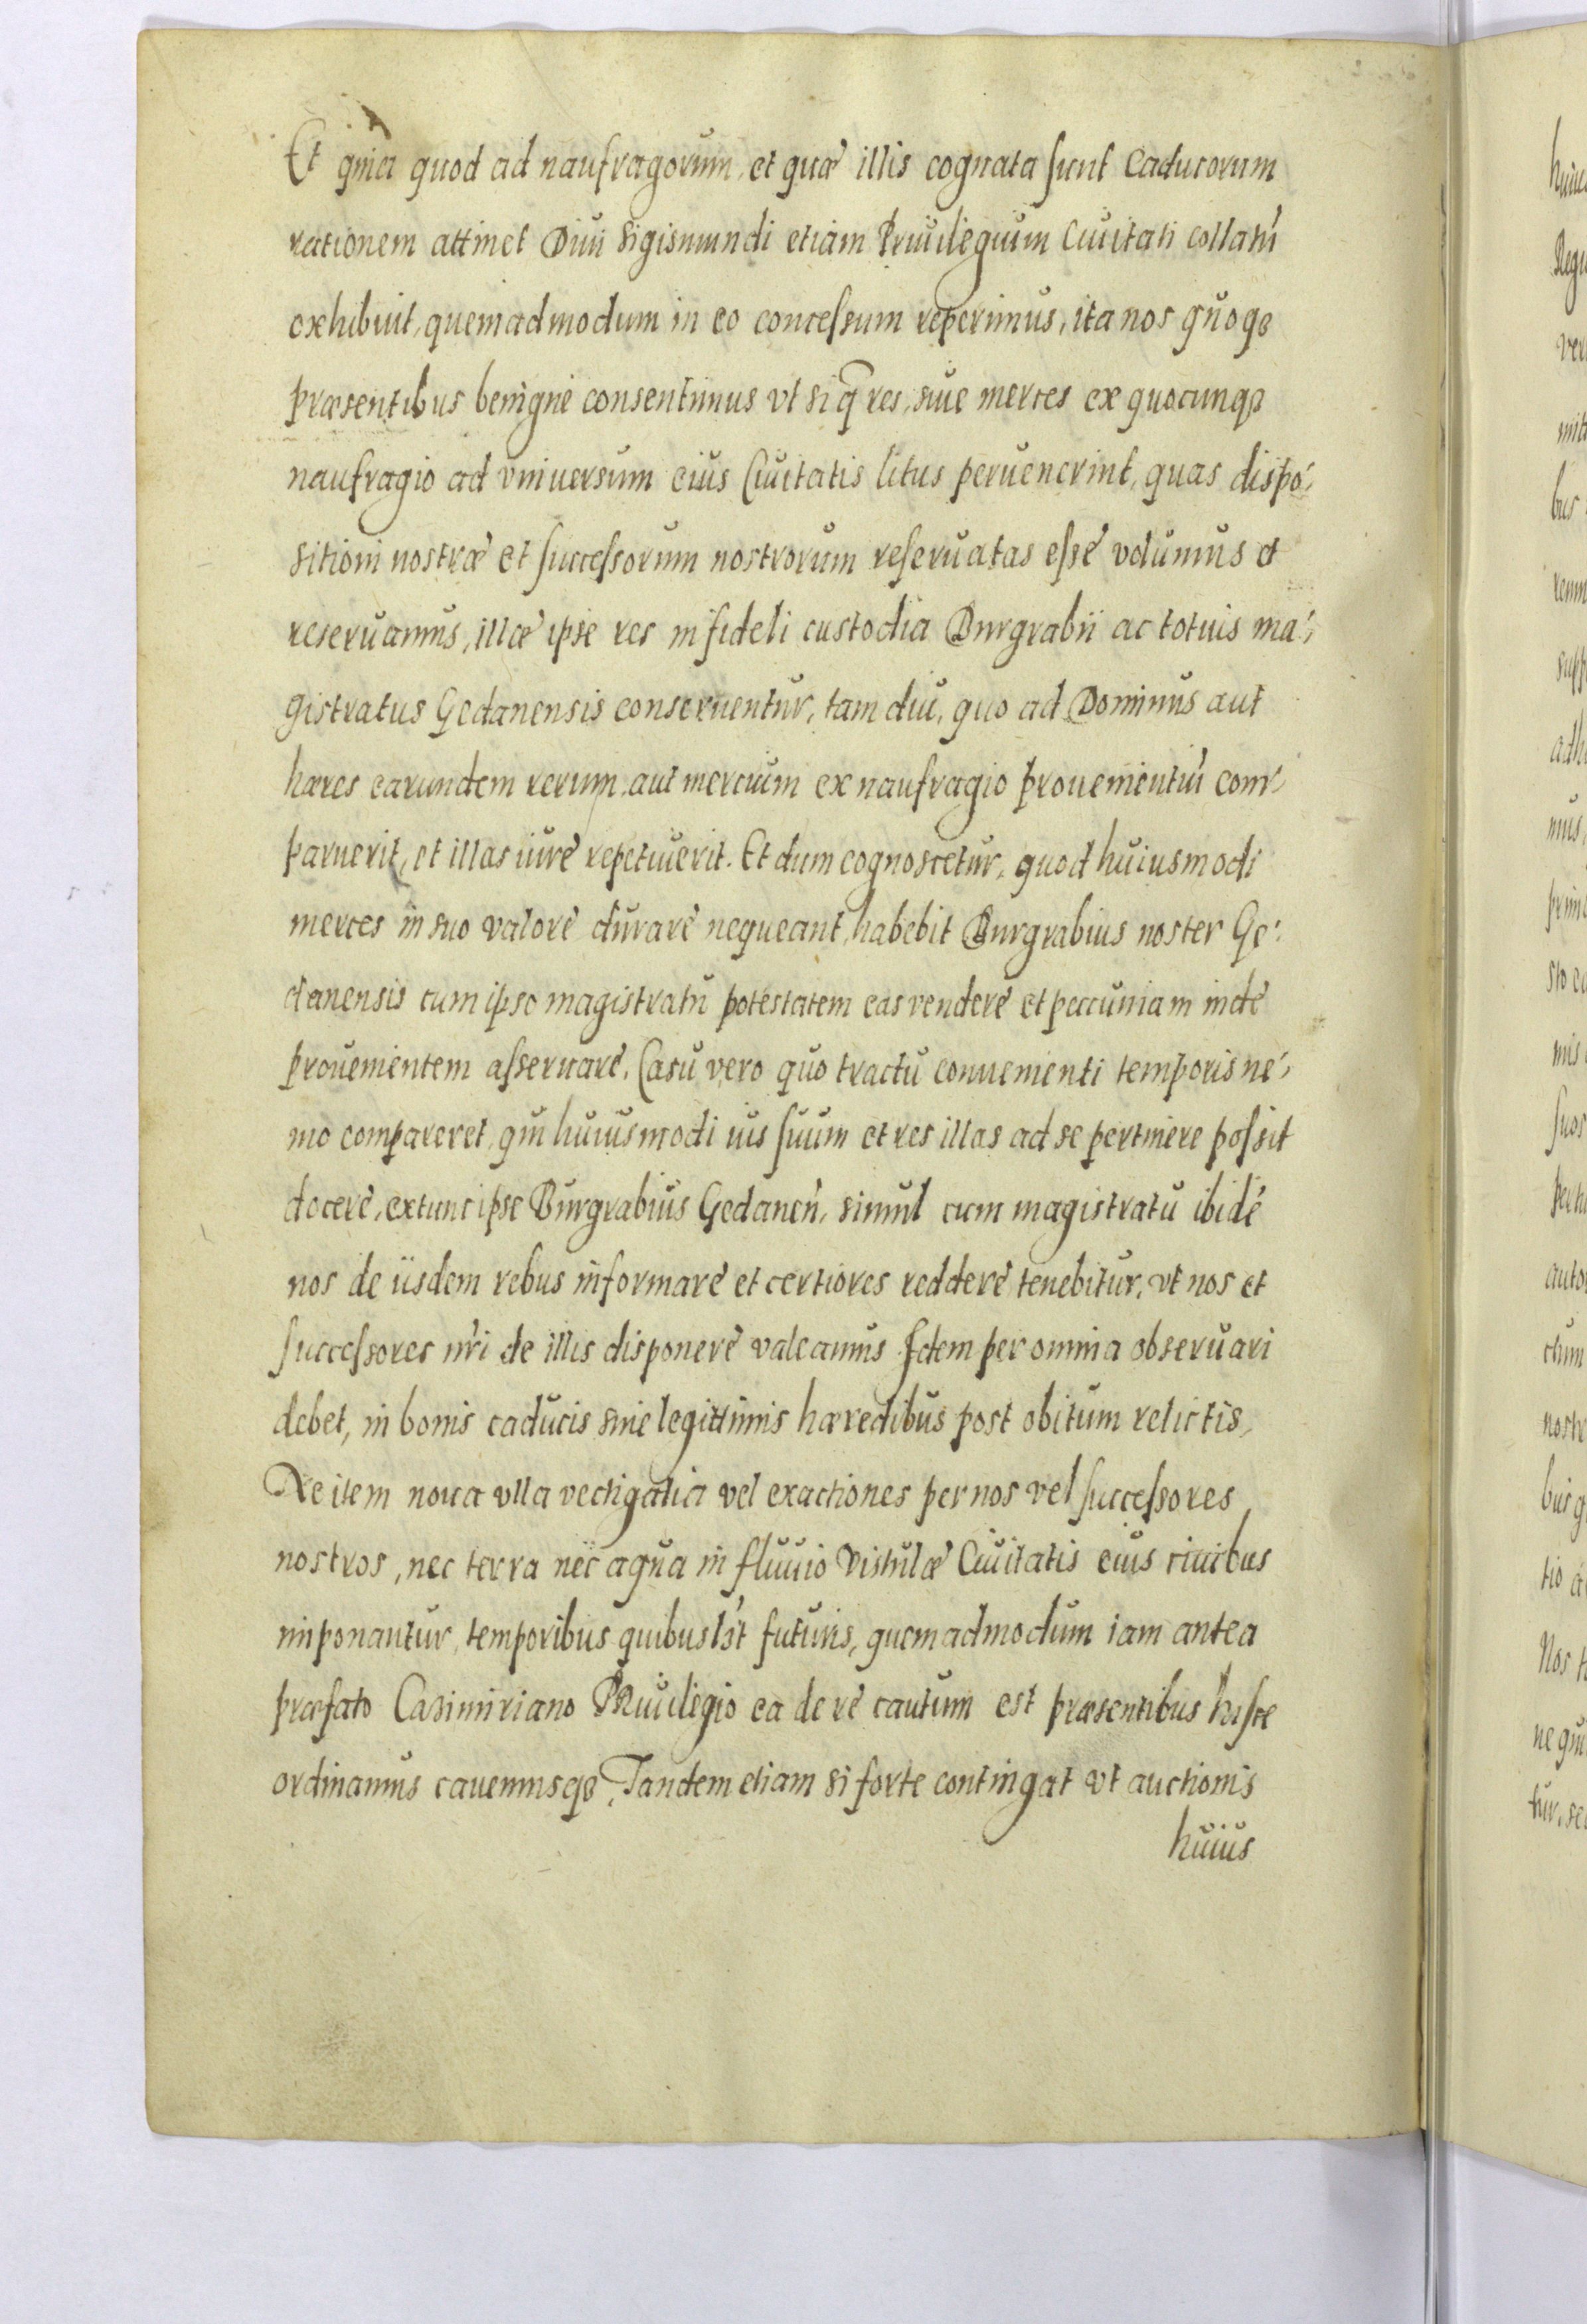 Et quia quod ad naufragorum, et quæ illis cognata sunt Caducorum
rationem attinet Diui Sigismundi etiam Priuilegium Ciuitati collatū
exhibuit, quemadmodum in eo concessum reperimus, ita nos quoqȝ
præsentibus benignè consentimus vt si q̃ res, siue merces ex quocunqȝ
naufragio ad vniuersum eius Ciuitatis litus peruenerint, quas dispo-
sitioni nostræ et successorum nostrorum reseruatas esse volumus et
reseruamus, illæ ipse res in fideli custodia Burgrabii ac totius ma-
gistratus Gedanensis conseruentur, tam diu, quo ad Dominus aut
hæres earundem rerum, aut mercium ex naufragio prouenientiū com-
paruerit, et illas iure repetiuerit. Et dum cognoscetur, quod huiusmodi
merces in suo valore durare nequeant, habebit Burgrabius noster Ge-
danensis cum ipso magistratu potestatem eas vendere et pecuniam inde
prouenientem asseruare. Casu vero quo tractu conuenienti temporis ne-
mo compareret, qui huiusmodi ius suum et res illas ad se pertinere possit
docere, extunc ipse Burgrabius Gedaneñ, simul cum magistratu ibidē
nos de iisdem rebus informare et certiores reddere tenebitur, vt nos et
successores nr̃i de illis disponere valeamus. Idem per omnia obseruari
debet, in bonis caducis sine legittimis hæredibus post obitum relictis,
Ne item noua vlla vectigalia vel exactiones per nos vel successores
nostros, nec terra nec aqua in fluuio Vistulæ Ciuitatis eius ciuibus
imponantur, temporibus quibusl̃t futuris, quemadmodum iam antea
præfato Casimiriano Priuilegio ea de re cautum est præsentibus hisce
ordinamus cauemusqȝ, Tandem etiam si forte contingat vt auctionis
huius